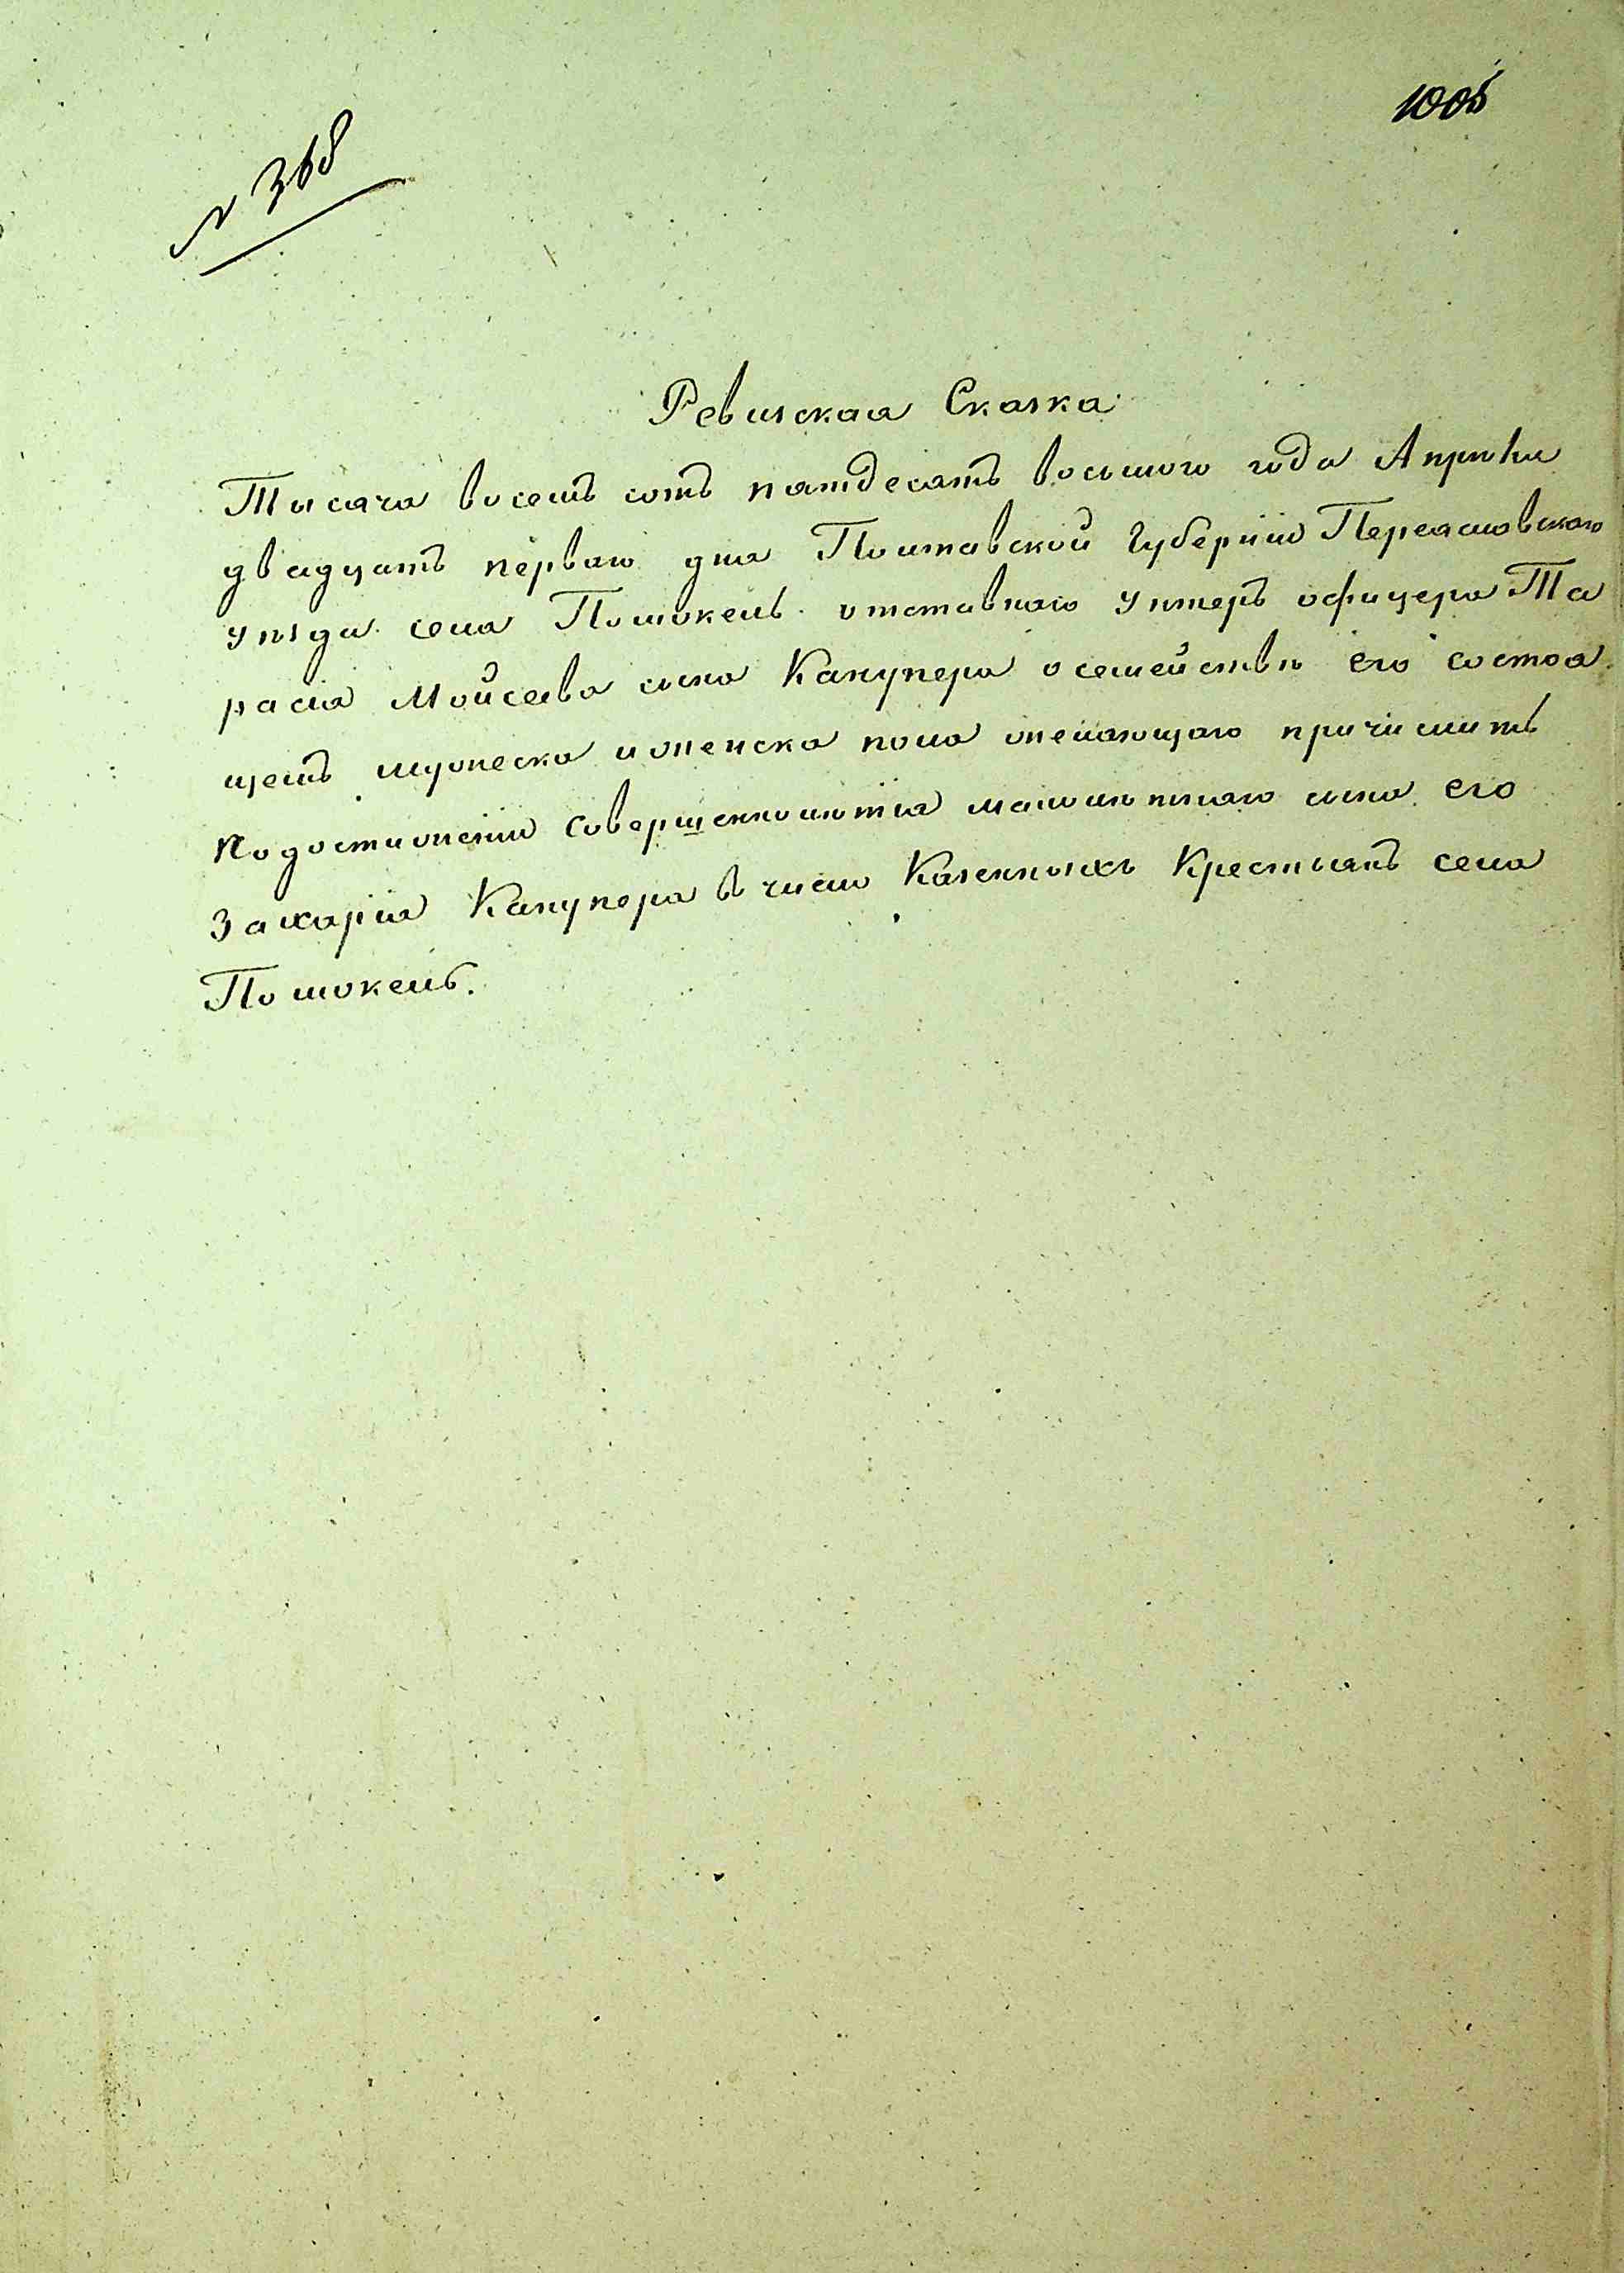 1005
№ 368
Ревизская Сказка
Тысяча восемь сотъ пятдесятъ восьмого года Апрѣля
двадцать перваго дня Полтавской Губерніи Переясловскаго
уѣзда села Положекъ отставнаго Унтеръ офицера Та
расія Мойсеева сына Канупера о семействѣ его состоя
щемъ мужеска и женска пола желающаго причислить
по достиженіи совершеннолѣтія малолѣтнаго сына его
Захарія Канупера въ число Казенныхъ Крестьянъ села